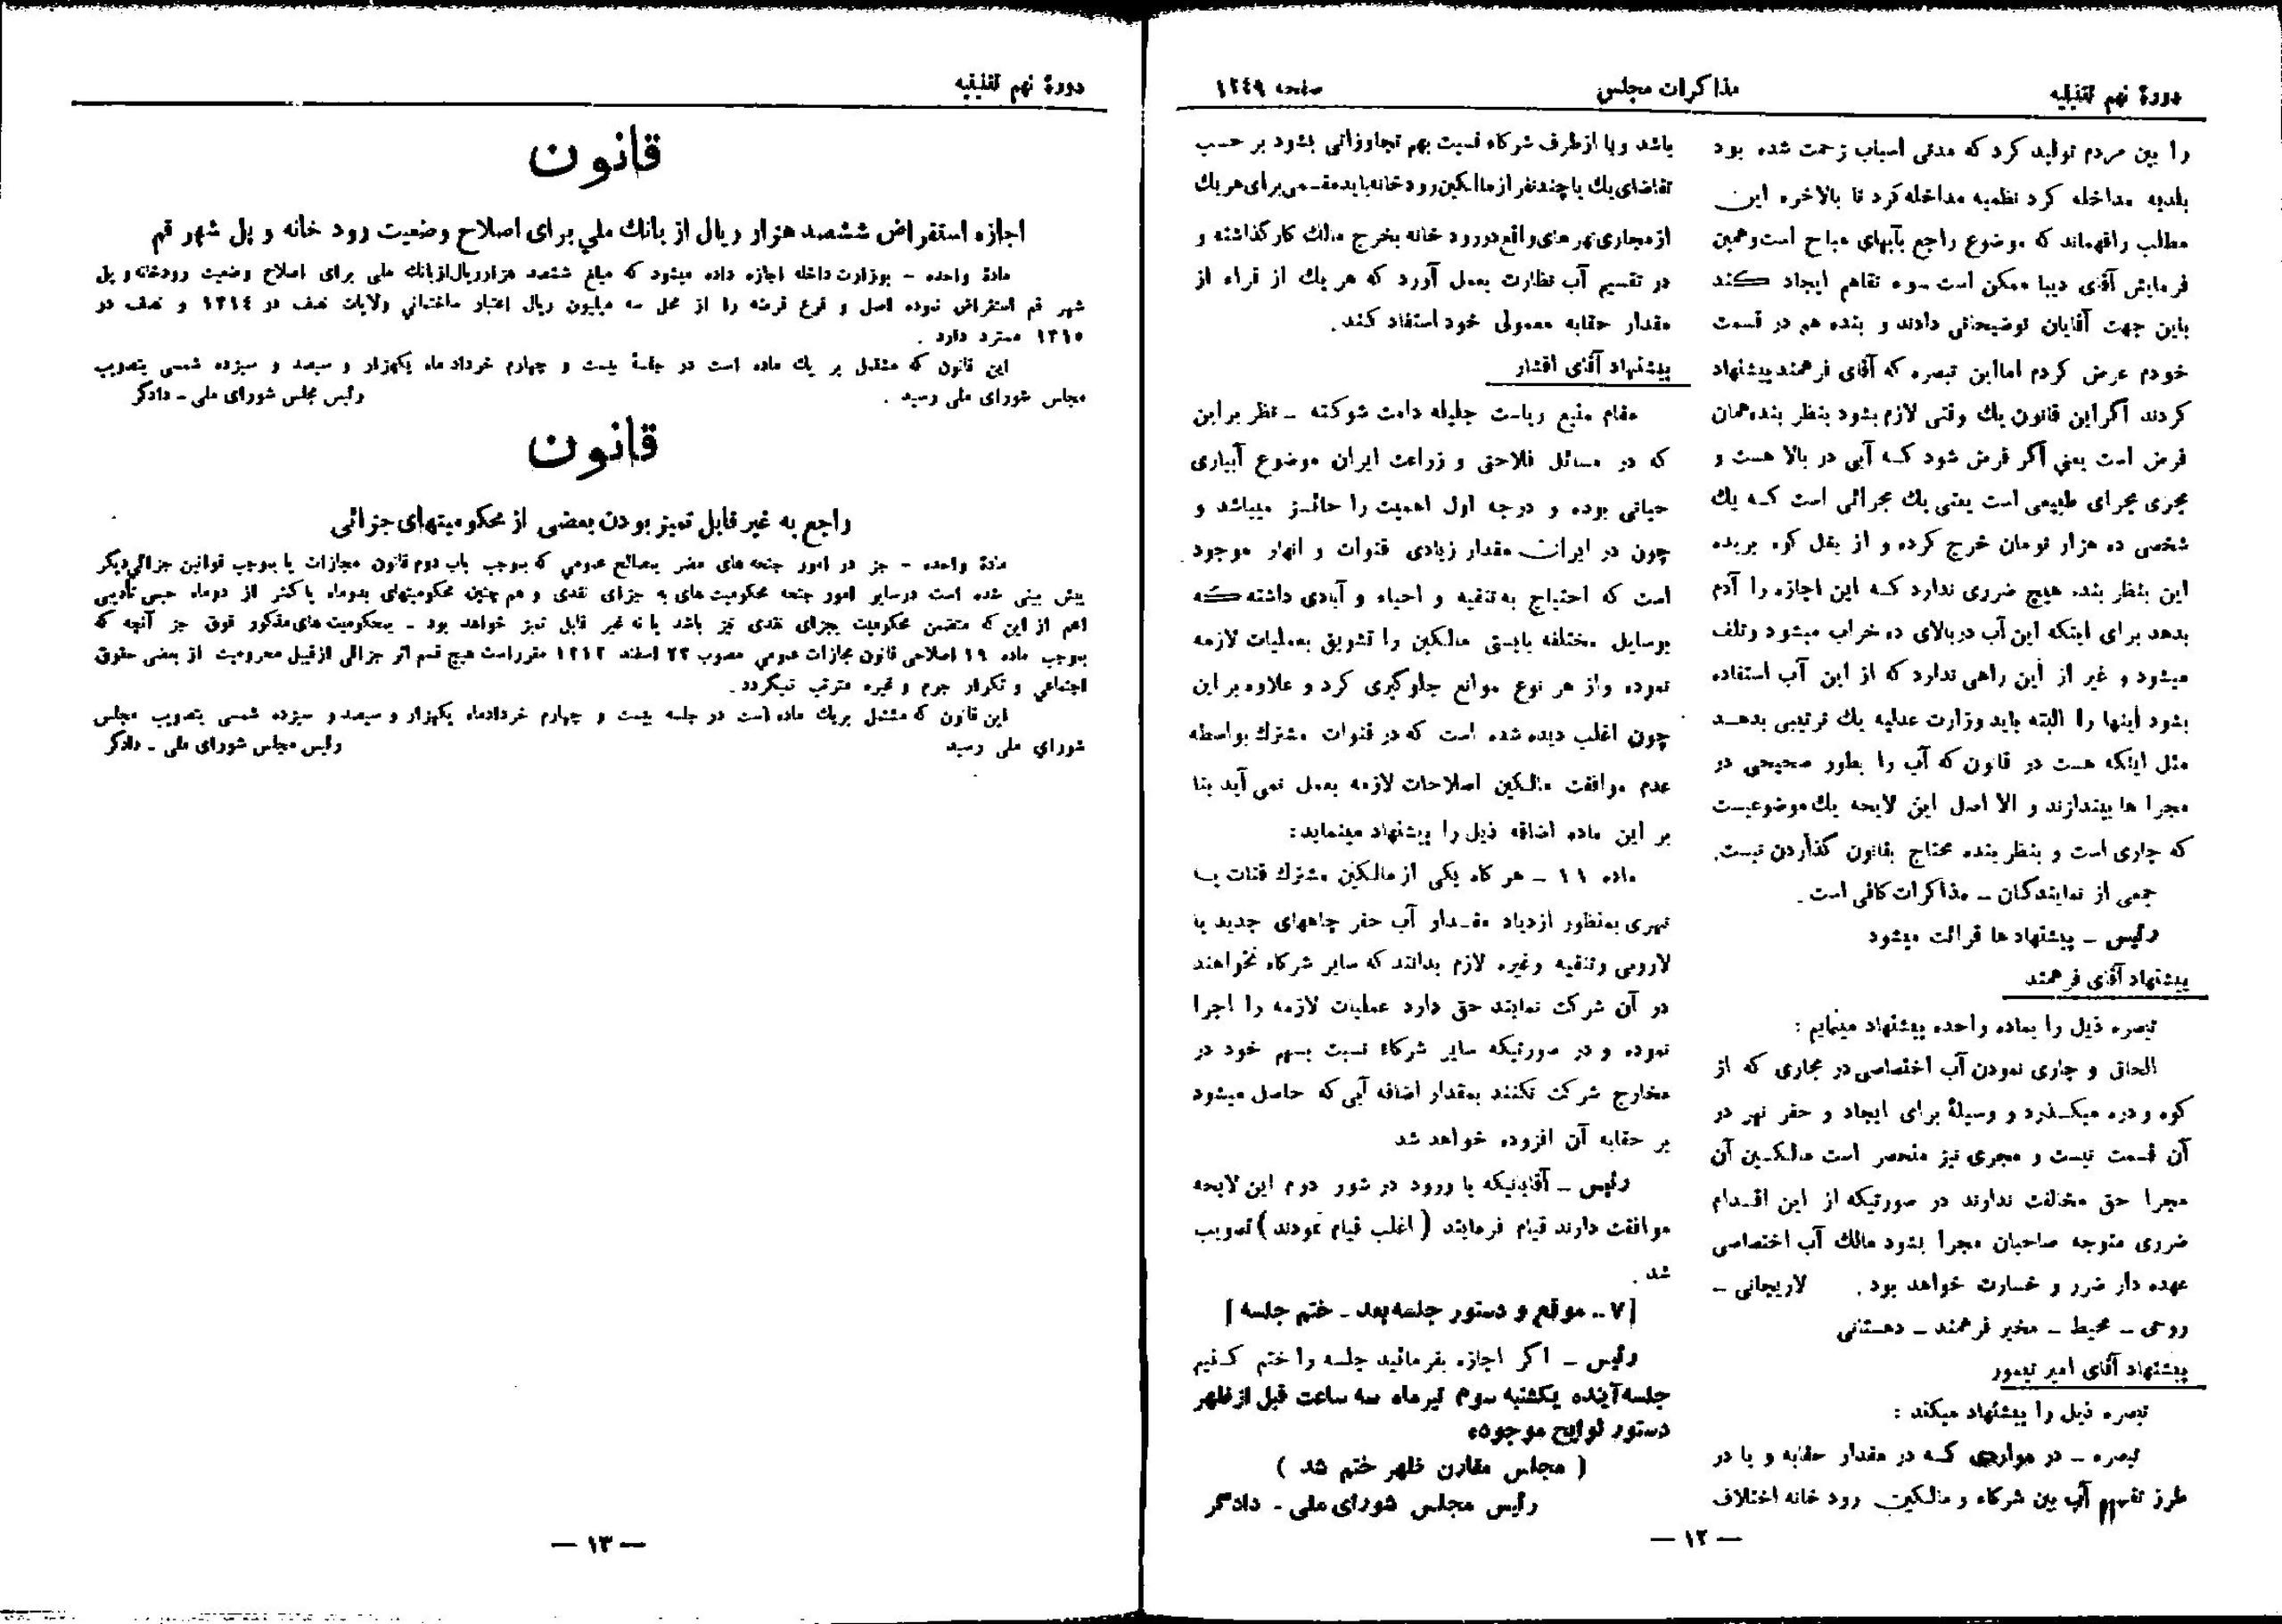 دورهٔ نهم تقنینیه
مذاکرات مجلس
صفحه ۱۲۴۹
را بین مردم تولید کرد که مدتی اسباب زحمت شده بود
بلدیه مداخله کرد نظمیه مداخله کرد تا بالاخره این
مطلب را فهماند که موضوع راجع بآبهای مباح است و همین
فرمایش آقای دیبا ممکن است سوء تفاهم ایجاد کند
باین جهت آقایان توضیحاتی دادند و بنده هم در قسمت
خودم عرض کردم اما این تبصره که آقای فرهمند پیشنهاد
کردند اگر این قانون یك وقتی لازم بشود بنظر بنده همان
فرض است یعنی اگر فرض شود کـه آبی در بالا هست و
مجری مجرای طبیعی است یعنی یك مجرائی است کـه یك
شخصی ده هزار تومان خرج کرده و از بغل کوه بریده
این بنظر بنده هیچ ضرری ندارد کـه این اجازه را آدم
بدهد برای اینکه این آب در بالای ده خراب میشود و تلف
میشود و غیر از این راهی ندارد که از این آب استفاده
بشود اینها را البته باید وزارت عدلیه یك ترتیبی بدهـد
مثل اینکه هست در قانون که آب را بطور صحیحی در
مجرا ها بیندازند و الا اصل این لایحه یك موضوعیست
که جاری است و بنظر بنده محتاج بقانون گذاردن نیست.
جمعی از نمایندگان ـ مذاکرات کافی است .
رئیس ـ پیشنهاد ها قرائت میشود
پیشنهاد آقای فرهمند
تبصره ذیل را بماده واحده پیشنهاد مینمایم :
الحاق و جاری نمودن آب اختصاصی در مجاری که از
کوه و دره میگـذرد و وسیلهٔ برای ایجاد و حفر نهر در
آن قسمت نیست و مجری نیز منحصر است مالکـین آن
مجرا حق مخالفت ندارند در صورتیکه از این اقـدام
ضرری متوجه صاحبان مجرا بشود مالك آب اختصاصی
عهده دار ضرر و خسارت خواهد بود . لاریجانی ـ
روحی ـ محیط ـ مخبر فرهمند ـ دهستانی
پیشنهاد آقای امیر تیمور
تبصره ذیل را پیشنهاد میکند :
تبصره ـ در مواردی کـه در مقدار حقابه و یا در
طرز تقسیم آب بین شرکاء و مالکین رود خانه اختلاف
باشد و یا از طرف شرکاء نسبت بهم تجاوزاتی بشود بر حسب
تقاضای یك یا چند نفر از مالکین رود خانه باید مقـسمی برای هر یك
از مجاری نهر های واقع در رود خانه بخرج مالك کار گذاشته و
در تقسیم آب نظارت بعمل آورد که هر یك از قراء از
مقدار حقابه معمولی خود استفاده کند .
پیشنهاد آقای افشار
مقام منیع ریاست جلیله دامت شوکته ـ نظر بر این
که در مسائل فلاحتی و زراعت ایران موضوع آبیاری
حیاتی بوده و درجه اول اهمیت را حائـز میباشد و
چون در ایران مقدار زیادی قنوات و انهار موجود
است که احتیاج به تنقیه و احیاء و آبادی داشته که
بوسایل مختلفه بایستی مالکین را تشویق بعملیات لازمه
نموده و از هر نوع موانع جلوگیری کرد و علاوه بر این
چون اغلب دیده شده است که در قنوات مشترك بواسطه
عدم موافقت مالکین اصلاحات لازمه بعمل نمی آید بنا
بر این ماده اضافه ذیل را پیشنهاد مینماید:
ماده ۱۱ ـ هر گاه یکی از مالکین مشترك قنات یـا
نهری بمنظور ازدیاد مقـدار آب حفر چاههای جدید یا
لاروبی و تنقیه و غیره لازم بدانند که سایر شرکاء نخواهند
در آن شرکت نمایند حق دارد عملیات لازمه را اجرا
نموده و در صورتیکه سایر شرکاء نسبت بسهم خود در
مخارج شرکت نکنند بمقدار اضافه آبی که حاصل میشود
بر حقابه آن افزوده خواهد شد
رئیس ـ آقایانیکه با ورود در شور دوم این لایحه
موافقت دارند قیام فرمایند ( اغلب قیام نمودند ) تصویب
شد .
[ ۷ ـ موقع و دستور جلسه بعد ـ ختم جلسه ]
رئیس ـ اگر اجازه بفرمائید جلسه را ختم کـنیم
جلسه آینده یکشنبه سوم تیر ماه سه ساعت قبل از ظهر
دستور لوایح موجوده
( مجلس مقارن ظهر ختم شد )
رئیس مجلس شورای ملی ـ دادگر
— ۱۲ —
دورهٔ نهم تقنینیه
قانون
اجازه استقراض ششصد هزار ریال از بانك ملی برای اصلاح وضعیت رود خانه و پل شهر قم
مادهٔ واحده ـ بوزارت داخله اجازه داده میشود که مبلغ ششصد هزار ریال از بانك ملی برای اصلاح وضعیت رودخانه و پل
شهر قم استقراض نموده اصل و فرع قرضه را از محل سه میلیون ریال اعتبار ساختمانی ولایات نصف در ۱۳۱۴ و نصف در
۱۳۱۵ مسترد دارد .
این قانون که مشتمل بر یك ماده است در جلسهٔ بیست و چهارم خرداد ماه یکهزار و سیصد و سیزده شمسی بتصویب
مجلس شورای ملی رسید . رئیس مجلس شورای ملی ـ دادگر
قانون
راجع به غیر قابل تمیز بودن بعضی از محکومیتهای جزائی
مادهٔ واحده ـ جز در امور جنحه های مضر بمصالح عمومی که بموجب باب دوم قانون مجازات یا بموجب قوانین جزائی دیگر
پیش بینی شده است در سایر امور جنحه محکومیت های به جزای نقدی و هم چنین محکومیتهای بدوماه یا کمتر از دوماه حبس تأدیبی
اعم از این که متضمن محکومیت بجزای نقدی نیز باشد یا نه غیر قابل تمیز خواهد بود ـ محکومیت های مذکور فوق جز آنچه که
بموجب ماده ۱۹ اصلاحی قانون مجازات عمومی مصوب ۲۳ اسفند ۱۳۱۲ مقرر است هیچ قسم اثر جزائی از قبیل محرومیت از بعضی حقوق
اجتماعی و تکرار جرم و غیره مترتب نمیگردد .
این قانون که مشتمل بر یك ماده است در جلسه بیست و چهارم خردادماه یکهزار و سیصد و سیزده شمسی بتصویب مجلس
شورای ملی رسید رئیس مجلس شورای ملی ـ دادگر
— ۱۳ —